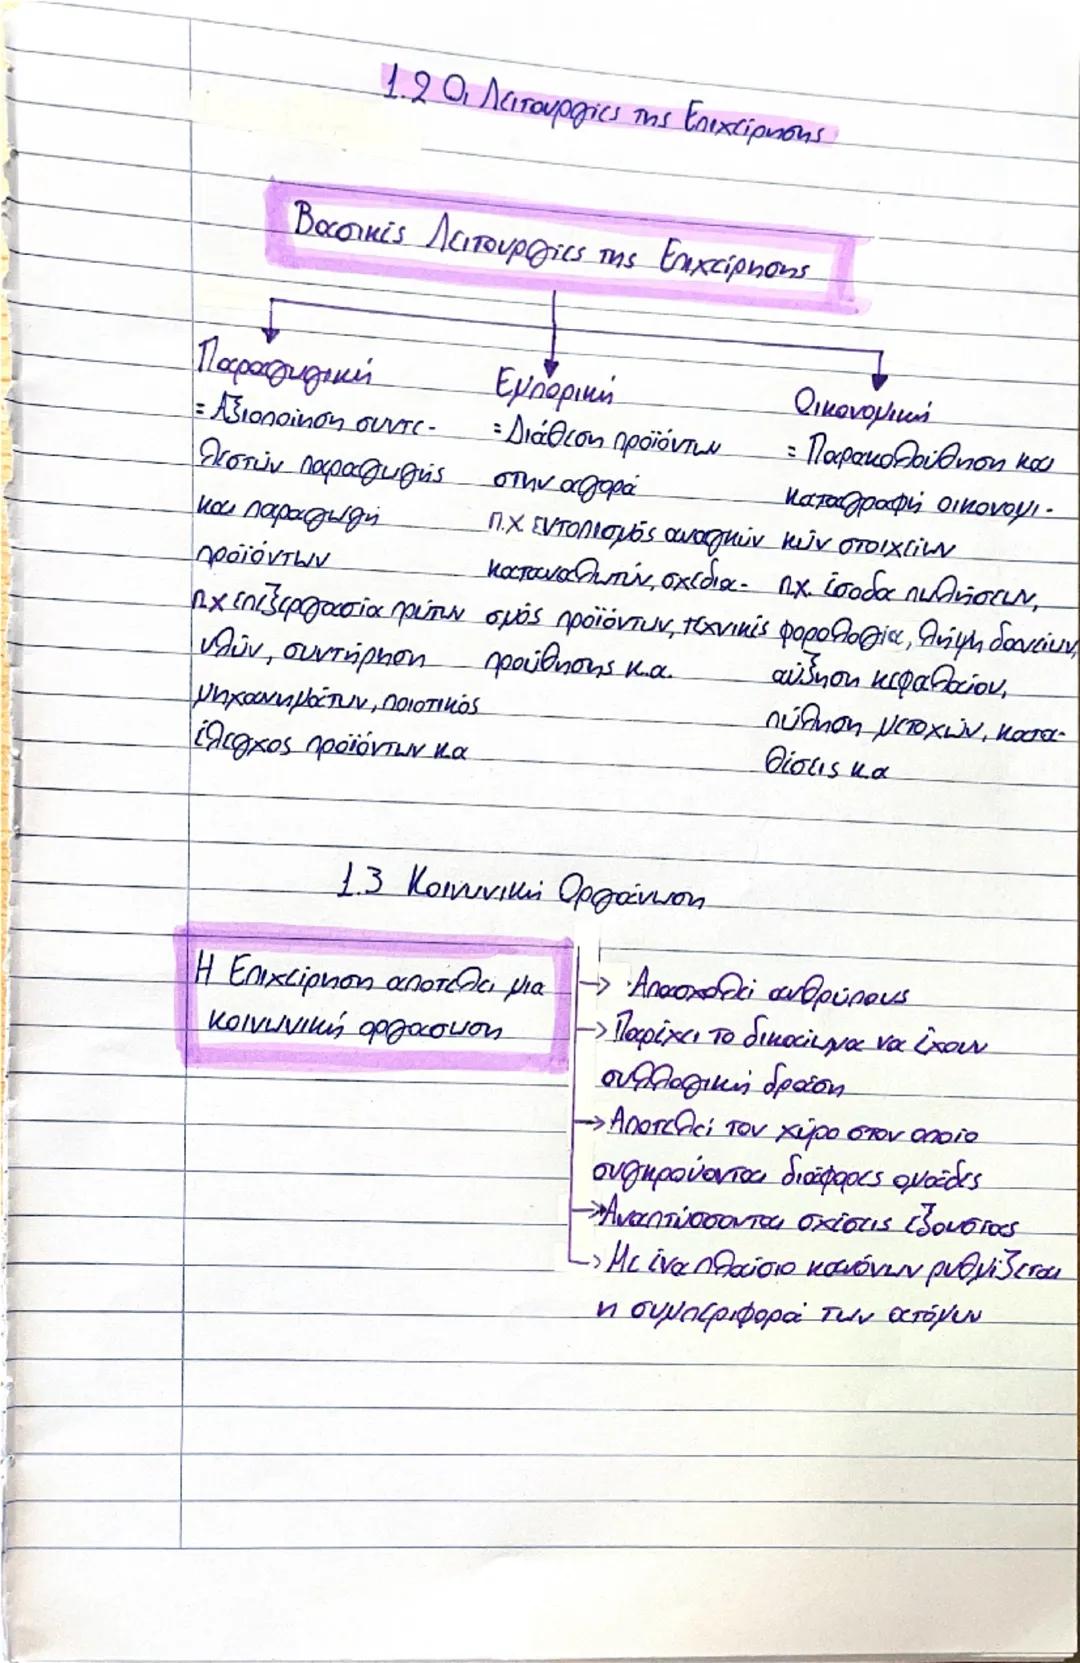 1.2 Οι Λειτουργίες της Επιχείρησης
Βασικές Λειτουργίες της Επιχείρησης
Παραγωγική
= Αξιοποίηση συντε-
λεστών παραγωγής
και παραγωγή
προϊόντων
π.χ επεξεργασία πρώτων
υλών, συντήρηση
μηχανημάτων, ποιοτικός
έλεγχος προϊόντων κα
Εμπορική
= Διάθεση προϊόντων
στην αγορά
π.χ εντοπισμός αναγκών
καταναλωτών, σχεδια-
σμός προϊόντων, τεχνικές
προώθησης κ.α.
Οικονομική
= Παρακολούθηση και
καταγραφή οικονομι-
κών στοιχείων
π.χ. έσοδα πωλήσεων,
φορολογία, λήψη δανείων,
αύξηση κεφαλαίου,
πώληση μετοχών, κατα-
θέσεις κ.α
1.3 Κοινωνική Οργάνωση
Η Επιχείρηση αποτελεί μια
κοινωνική οργάωση
→ Απασχολεί ανθρώπους
→ Παρέχει το δικαίωμα να έχουν
συλλογική δράση
→ Αποτελεί τον χώρο στον οποίο
συγκρούονται διάφορες ομάδες
→ Αναπτύσσονται σχέσεις εξουσίας
→ Με ένα πλαίσιο κανόνων ρυθμίζεται
η συμπεριφορά των ατόμων